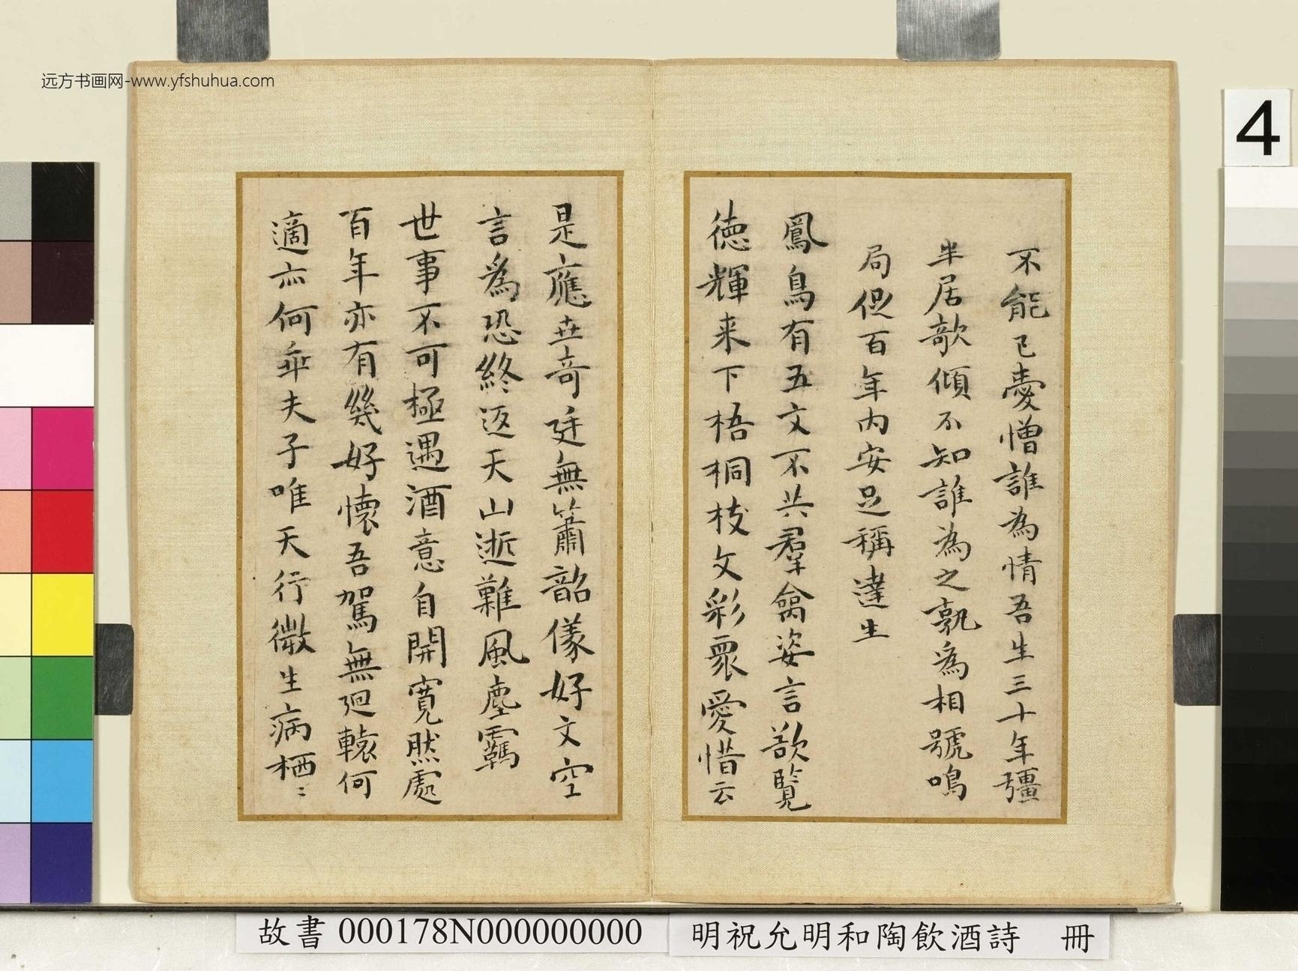 远方书画网-www.yfshuhua.com
4
不能已憂憎誰為情吾生三十年彊
半居欹傾不知誰為之孰為相號鳴
局促百年內安足稱達生
鳳鳥有五文不共羣禽姿言欲覽
德輝来下梧桐枝文彩眾愛惜云
是應世奇廷無簫韶儀好文空
言為恐終返天山逝難風塵羈
世事不可極遇酒意自開寬然處
百年亦有幾好懷吾駕無迴轅何
適亦何乖夫子唯天行微生病栖〻
故書000178N000000000
明祝允明和陶飲酒詩 冊